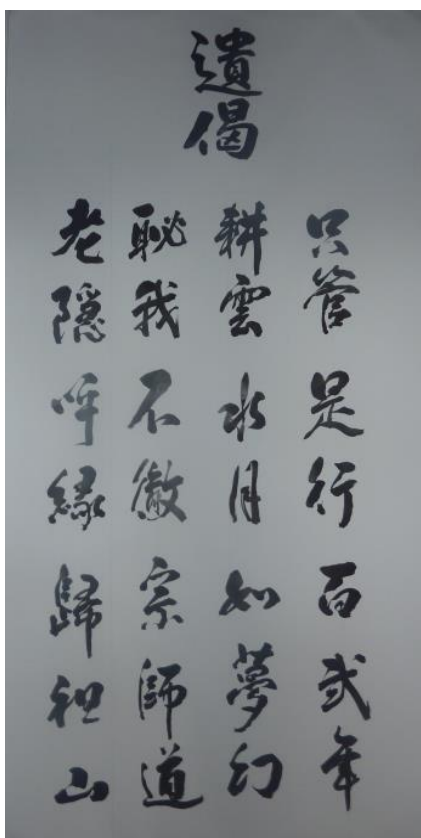 遺偈
只管是行百弐年
耕雲水月如夢幻
恥我不徹宗師道
老隠呼縁歸祖山